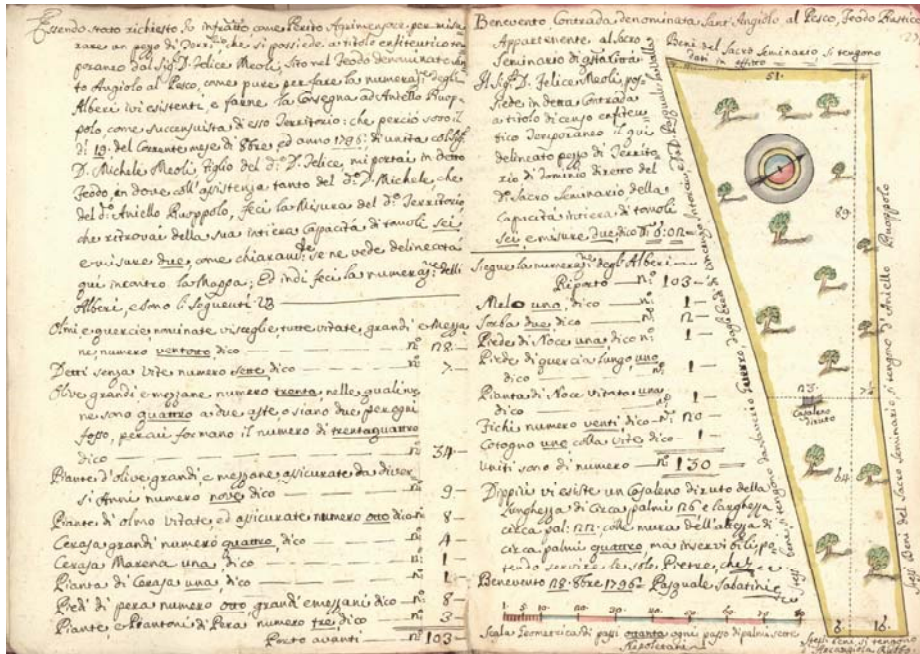 Essendo stato richiesto Io infratto come Perito Agrimensore, per misu
rare un pezzo di Terri:º che si possiede a titolo enfiteutico tem
poraneo dal Sig:r D. Felice Meoli, sito nel Feodo denominato San
to Angiolo al Pesco, come pure per fare la numeraz:ne degli
Alberi ivi esistenti, e farne la Consegna ad Aniello Ruop-
polo, come succensuista di esso Territorio: che perciò sotto il
dì 19. del Corrente mese di 8bre, ed anno 1796: di unita col Sig:r
D. Michele Meoli figlio del dº D. Felice, mi portai in detto
Feodo, in dove coll'assistenza tanto del dº D. Michele, che
del dº Aniello Ruoppolo, feci la Misura del dº Territorio
che ritrovai della sua intiera Capacità di tomoli sei,
e misure due, come chiaram:te se ne vede delineata
quì incontro la Mappa; Ed indi feci la numeraz:ne delli
Alberi, e sono li seguenti
Olmi, e quercie, nominate visceglie, tutte vitate, grandi e mezza
ne, numero ventotto dico — nº 28 —
Detti senza vite numero sette, dico — nº 7 —
Olive grandi e mezzane, numero trenta, nelle quali ve
ne sono quattro a due aste, o siano due per ogni
fosso, percui formano il numero di trentaquattro
dico — nº 34 —
Piante d'olive, grandi, e mezzane, assicurate da diver
si Anni numero nove, dico — nº 9 —
Piante di olmo vitate, ed assicurate numero otto dico nº 8 —
Cerasa grandi numero quattro, dico — nº 4 —
Cerasa Marena una, dico — nº 1 —
Pianta di Cerasa una, dico — nº 1 —
Piedi di pera numero otto, grandi e mezzani dico — nº 8 —
Piante, e Piantoni di Pera numero trei, dico — nº 3 —
Porto avanti — nº 103 —
Benevento Contrada denominata Sant'Angiolo al Pesco, Feodo Rustico
Appartenente al Sacro
Seminario di questa Città
Il Sig:r D. Felice Meoli pos-
siede in detta Contrada
a titolo di censo enfiteu
tico Temporaneo il quì
delineato pezzo di Territo
rio di Dominio diretto del
dº Sacro Seminario della
Capacità intiera di tomoli
sei, e misure due, dico Tª 6:02=
Siegue la numeraz:ne degli Alberi —
Riporto — nº 103 —
Melo uno, dico — nº 1 —
Sorba due, dico — nº 2 —
Piede di Noce una, dico nº 1 —
Piede di quercia lungo, uno
dico — nº 1 —
Pianta di Noce vitata una
dico — nº 1 —
Fichi numero venti dico — nº 20 —
Cotogna uno colla vite, dico — 1 —
Uniti sono di numero — nº 130 =
Dippiù vi esiste un Casaleno diruto della
lunghezza di Circa palmi 26 e larghezza
circa pal: 22: colle mura dell'altezza di
circa palmi quattro, ma inservibili, po
tendo servire le sole Pietre, che &
Benevento 28. 8bre 1796= Pasquale Sabatini
1 5 10 20 30 40 50
Scala Geometrica di passi ottanta ogni passo di palmi sette
Napoletani
Beni del Sacro Seminario, si tengono
51.
89.
7½
23.
Casaleno
diruto
64.
6. 16.
stessi Beni del Sacro Seminario, si tengono d'Aniello Ruoppolo
Stessi beni, si tengono
d'Arcangiola Russo